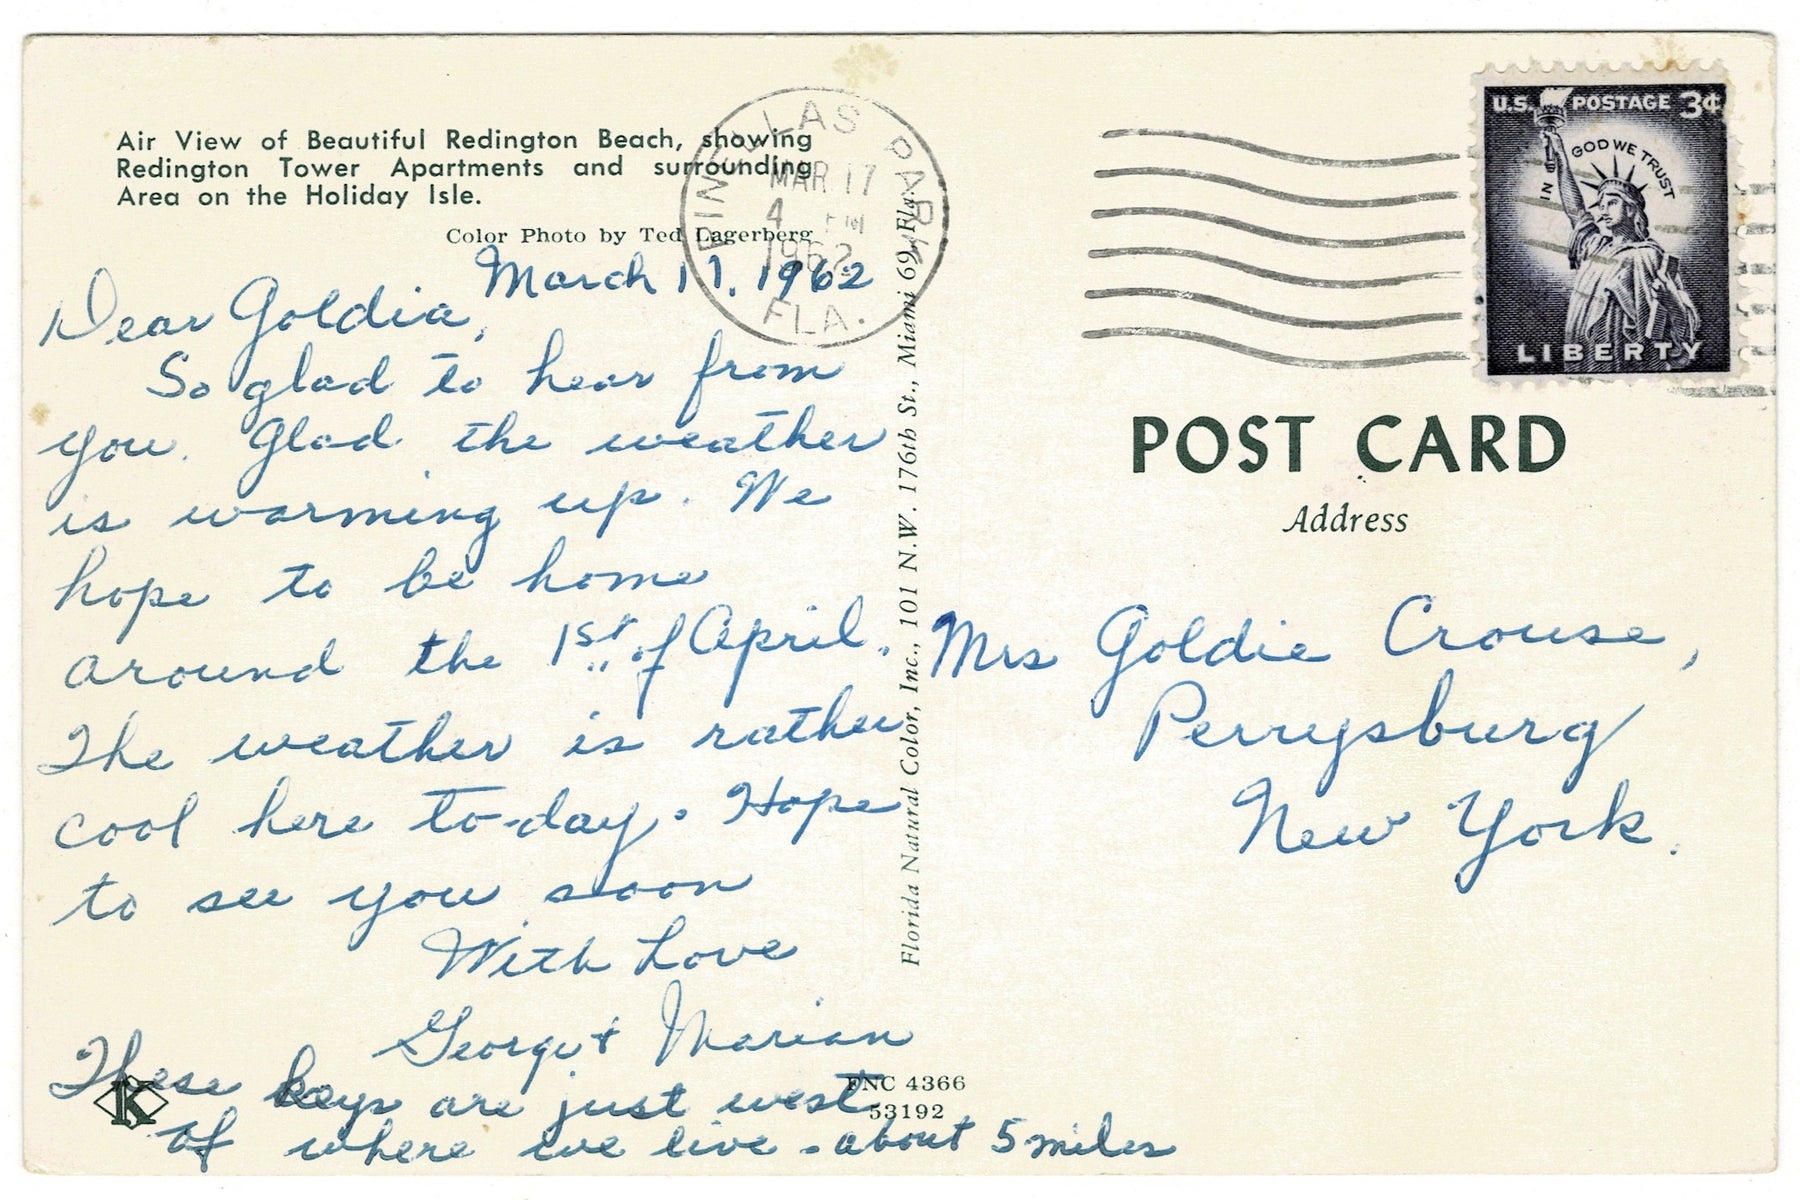 Air View of Beautiful Redington Beach, showing
Redington Tower Apartments and surrounding
Area on the Holiday Isle.
Color Photo by Ted Lagerberg
March 17, 1962
Dear Goldia,
So glad to hear from
you. Glad the weather
is warming up. We
hope to be home
around the 1st of April.
The weather is rather
cool here to-day. Hope
to see you soon
With Love
George & Marian
These keys are just west
of where we live - about 5 miles
K
FNC 4366
53192
Florida Natural Color, Inc., 101 N.W. 176th St., Miami 69, Fla.
PINELLAS PARK
MAR 17
4 PM
1962
FLA.
U.S. POSTAGE 3¢
IN GOD WE TRUST
LIBERTY
POST CARD
Address
Mrs Goldie Crouse,
Perrysburg
New York.